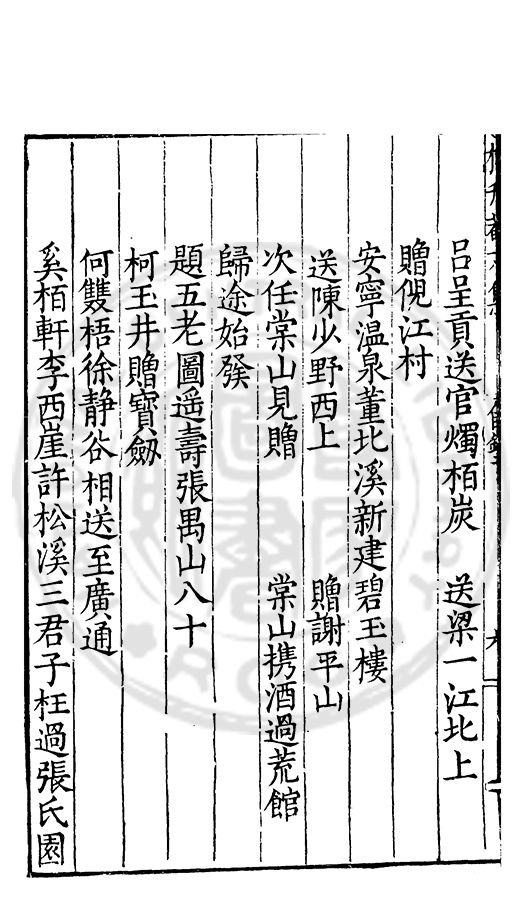 呂呈貢送官燭栢炭　送梁一江北上
贈倪江村
安寧温泉董北溪新建碧玉樓
送陳少野西上　贈謝平山
次任棠山見贈　棠山携酒過荒館
歸途始發
題五老圖遥壽張禺山八十
柯玉井贈寶劒
何雙梧徐静谷相送至廣通
奚栢軒李西崖許松溪三君子枉過張氏園